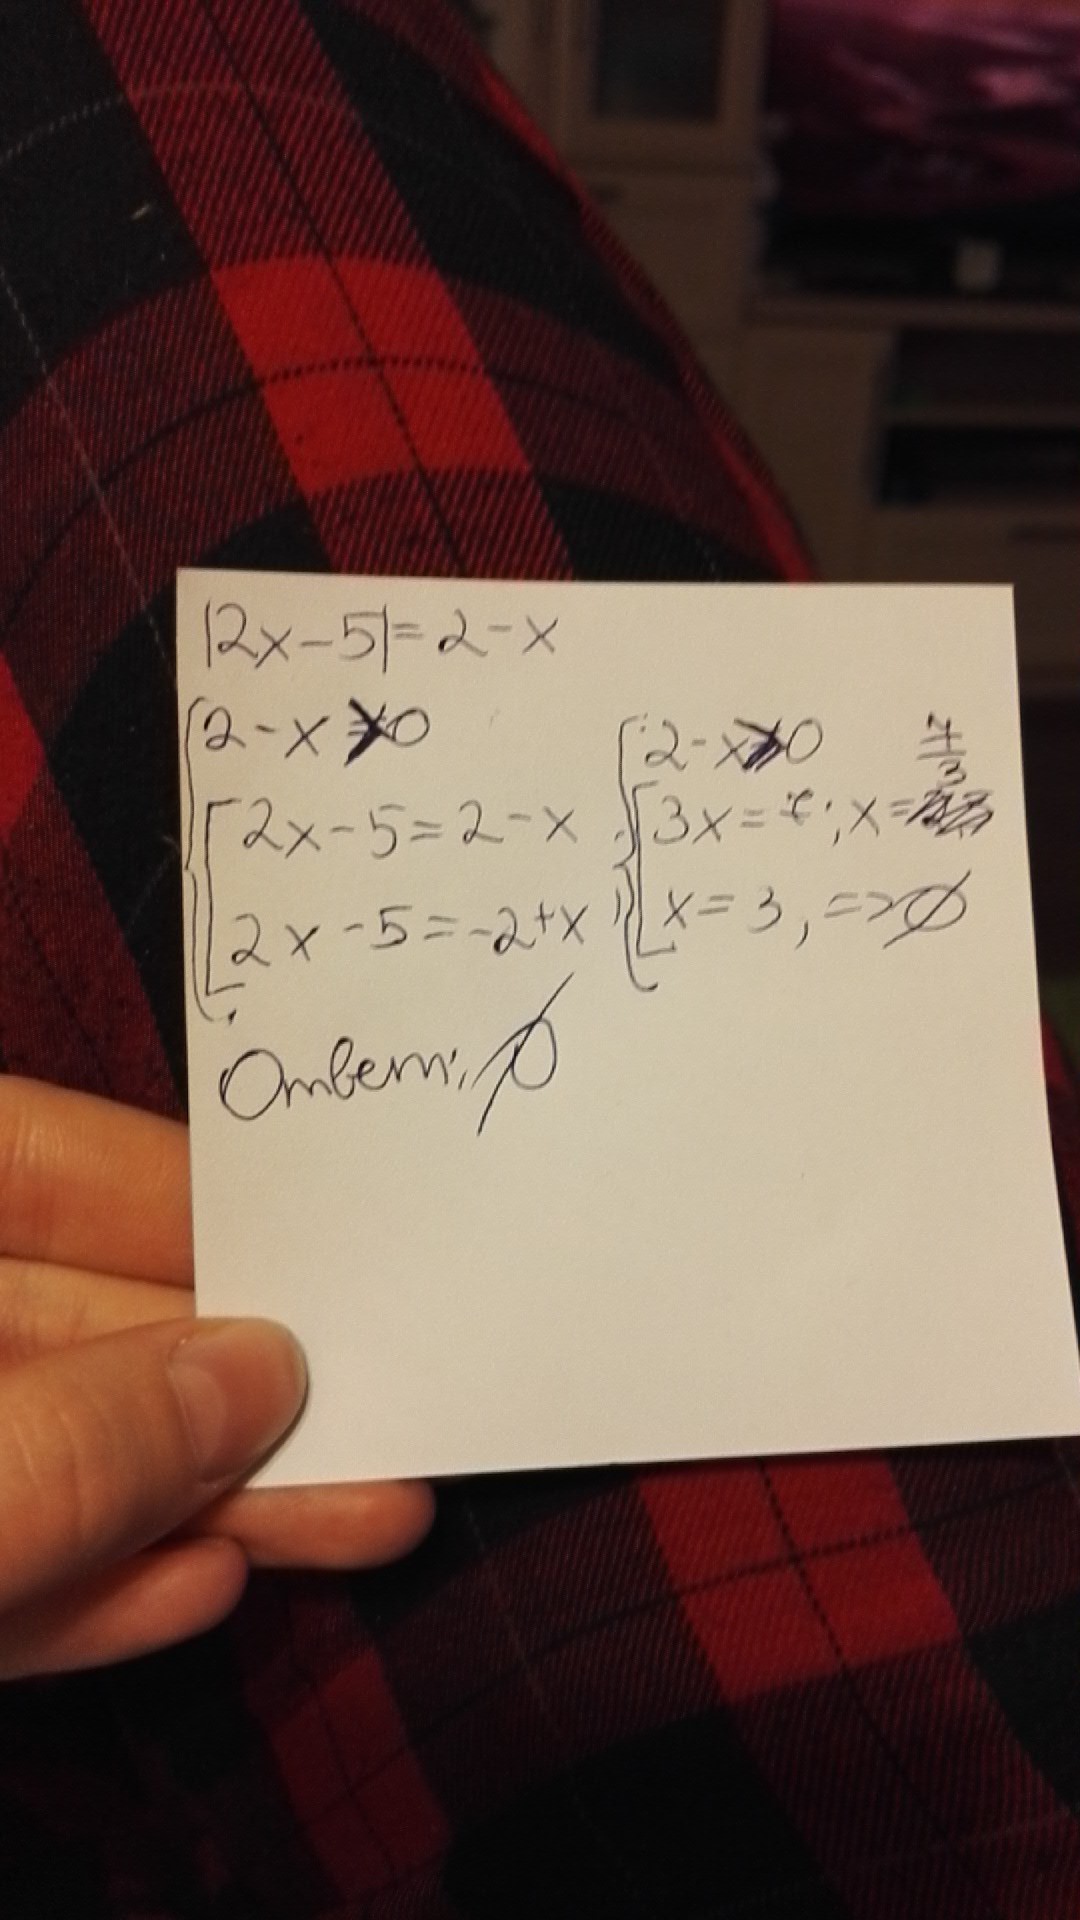 |2x-5|=2-x
2-x ≥0
2x-5=2-x
2x-5=-2+x
2-x≥0
3x= ; x= 7/3
x=3, =>∅
Ответ: ∅